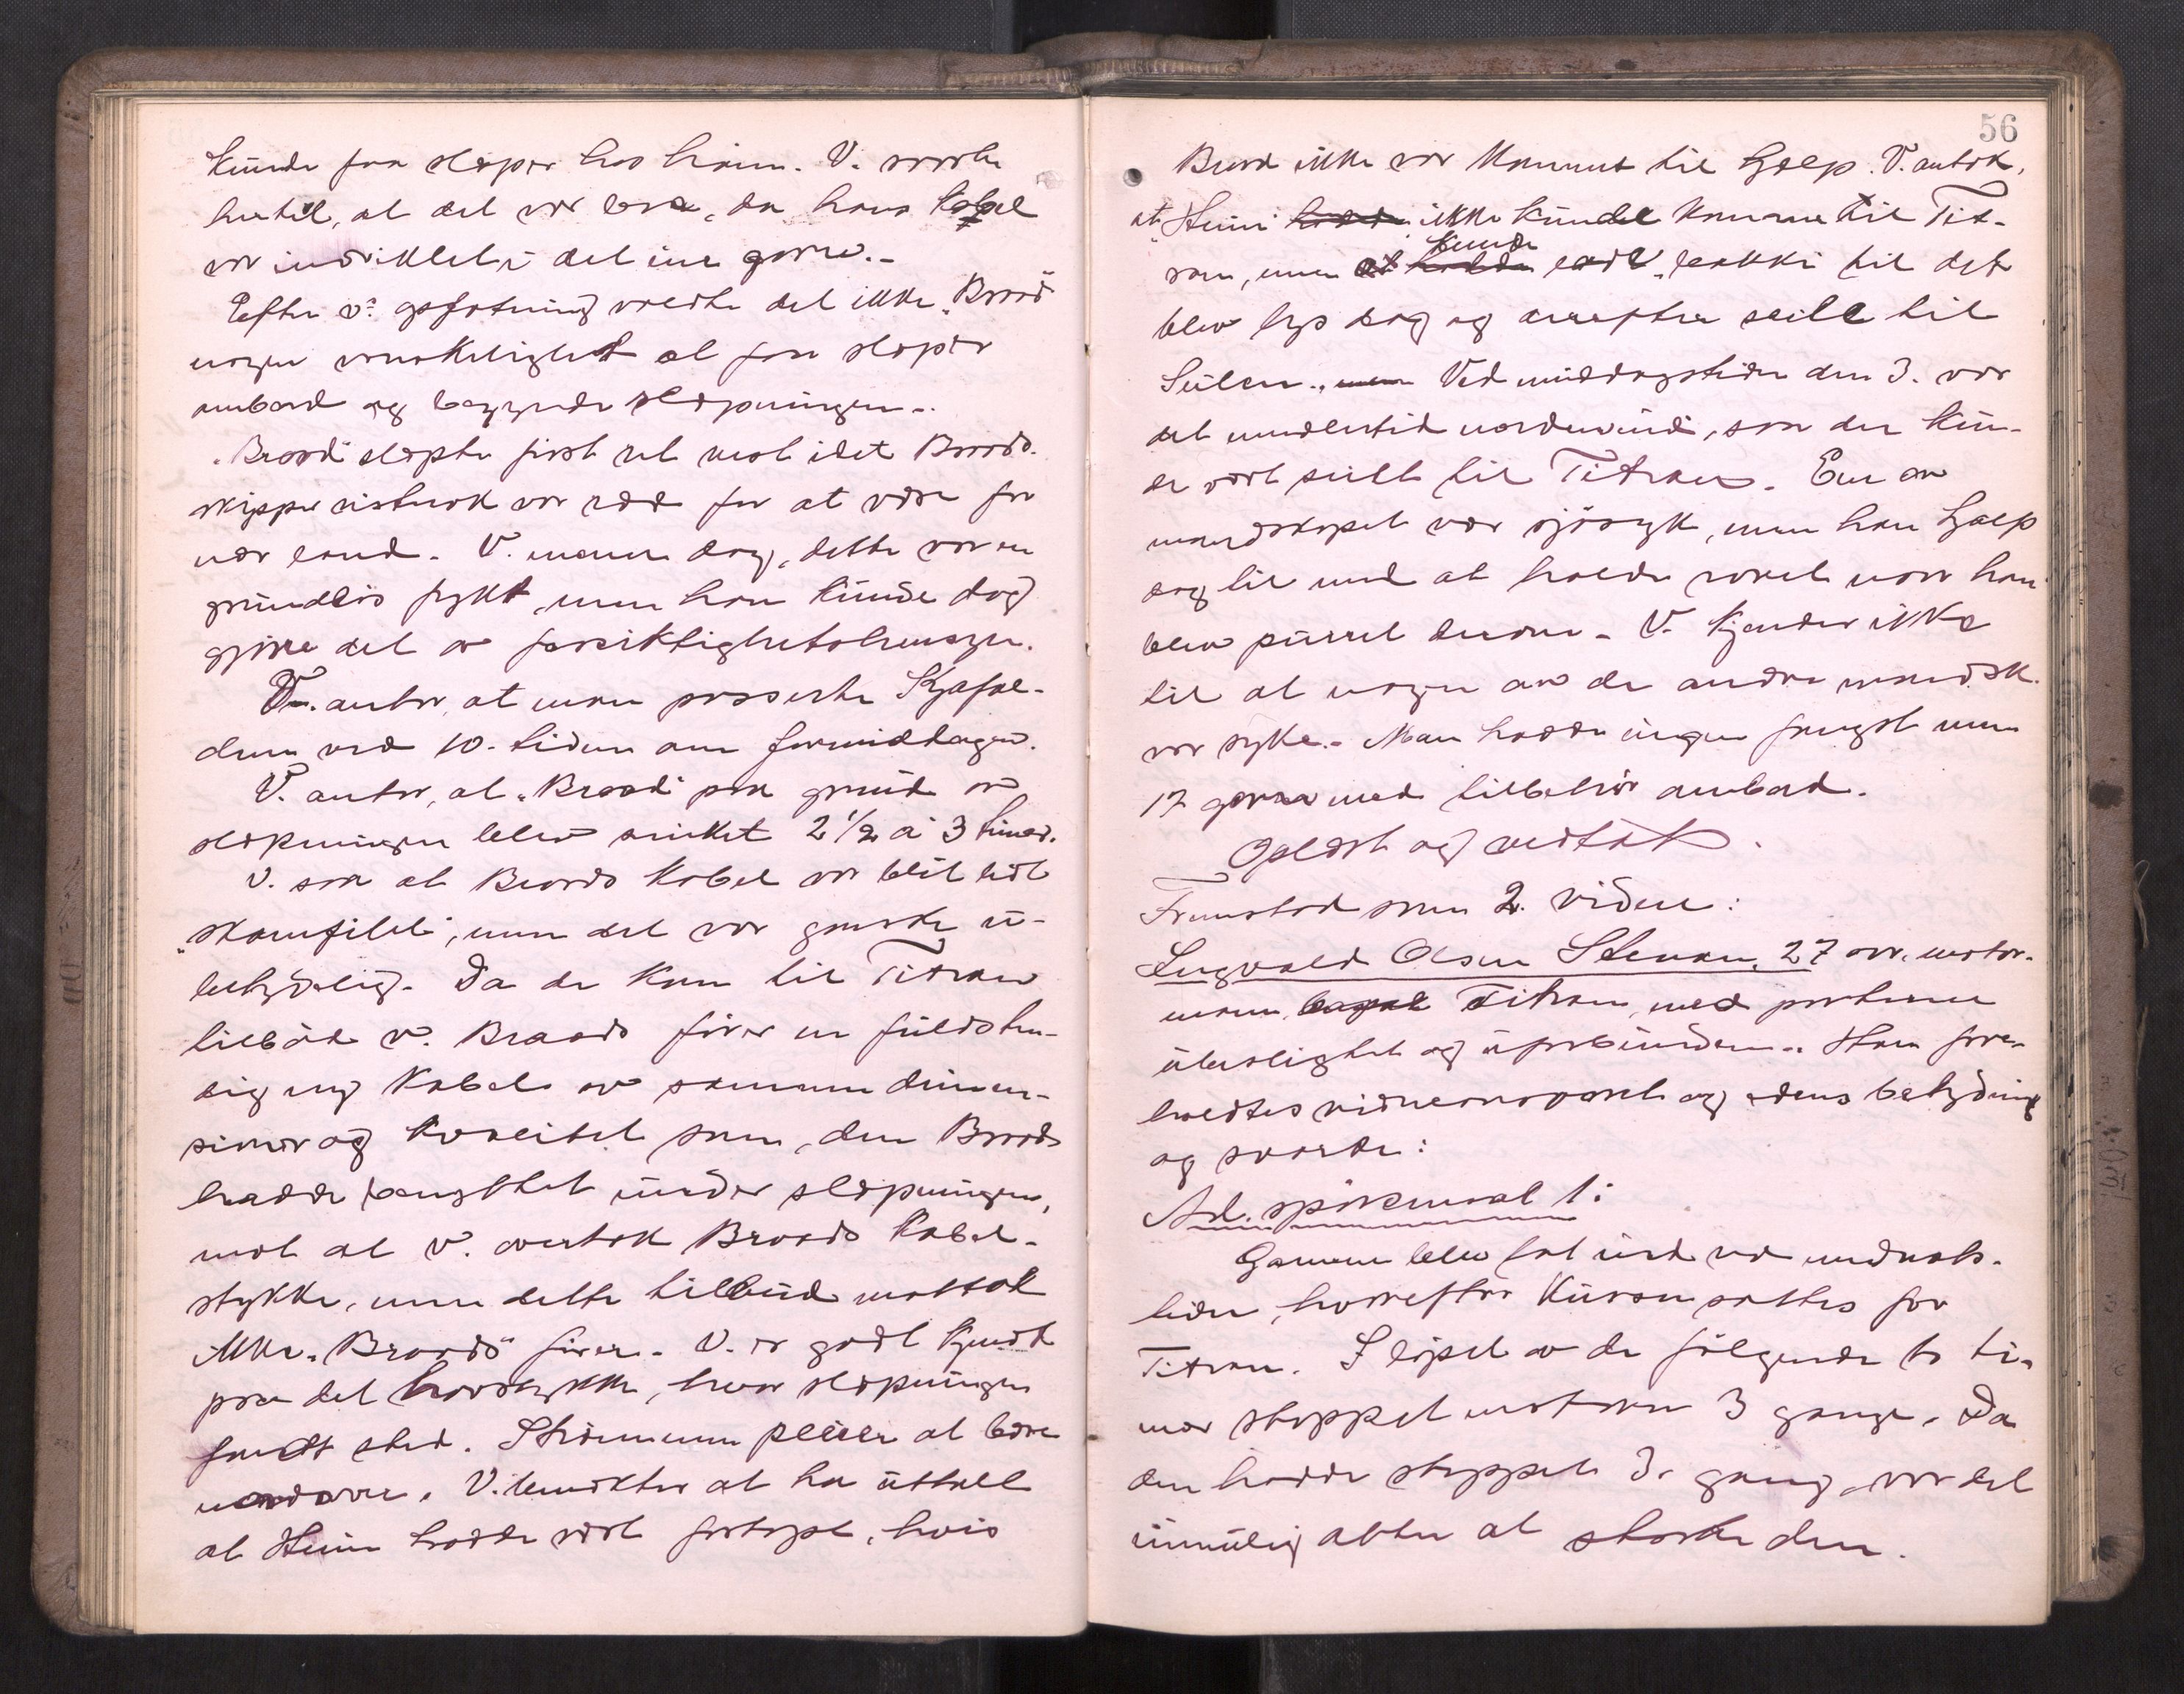 kunde faa slæper hos ham. V. svarte
hertil, at det var bra, da hans kabel
var indviklet i det ene garn.-
Efter v.s opfatning voldte det ikke "Braad"
nogen vanskelighet at faa slæper
ombord og begynde slæpningen.-
"Braad" slæpte først ret vest idet Braads
skipper vistnok var ræd for at være for
nær land. V. mener dog, dette var en
grundløs frykt, men han kunde dog
gjøre det av forsiktighetshensyn.
V. antar, at man passerte
ved 10-tiden om formiddagen.
V. antar, at "Braad" paa grund av
slæpningen blev sinket 2 1/2 à 3 timer.
V. saa at Braads kabel var blit lidt
"skamfilet", men det var ganske u-
betydelig. Da de kom til Titran
tilbød v. Braads fører en fuldsten-
dig ny kabel av samme dimen-
sioner og kvalitet som den Braad
hadde benyttet under slæpningen,
mot at v. overtok Braads kabel-
stykke, men dette tilbud mottok
ikke "Braads" fører. V. er godt kjendt
paa det havstykke, hvor slæpningen
fandt sted. Strømmen pleier at bære
nordover. V. benektet at ha uttalt
at Heim hadde vært fortapt, hvis
56
Braad ikke var kommet til hjælp. V. antok,
at "Heim hadde ikke kunde komme til Tit-
ran, men at hadde kunde lagt bakki til det
blev lys dag og derefter seile til
Sulen., men Ved middagstiden den 3. var
det imidlertid nordenvind, saa der kun-
de vært seilt til Titran. En av
mandskapet var sjøsyk, men han hjalp
dog til med at holde roret naar han
blev purret derom. V. kjender ikke
til at nogen av de andre mandsk.
var syke.- Man hadde ingen fangst men
17 garn med tilbehør ombord.
Oplæst og vedtat.
Fremstod som 2. vidne:
Ingvald Olsen Stenen, 27 aar, motor-
mann, Titran, med partene
ubeslegtet og uforbunden. Han fore-
holdtes vidneansvaret og edens betydning
og svarte:
Ad. spørsmaal 1:
Garnene blev sat ved midnats-
tider, hvorefter kursen sattes for
Titran. I løpet av de følgende to ti-
mer stoppet motoren 3 ganger. Da
den hadde stoppet 3. gang, var det
umulig atter at starte den.